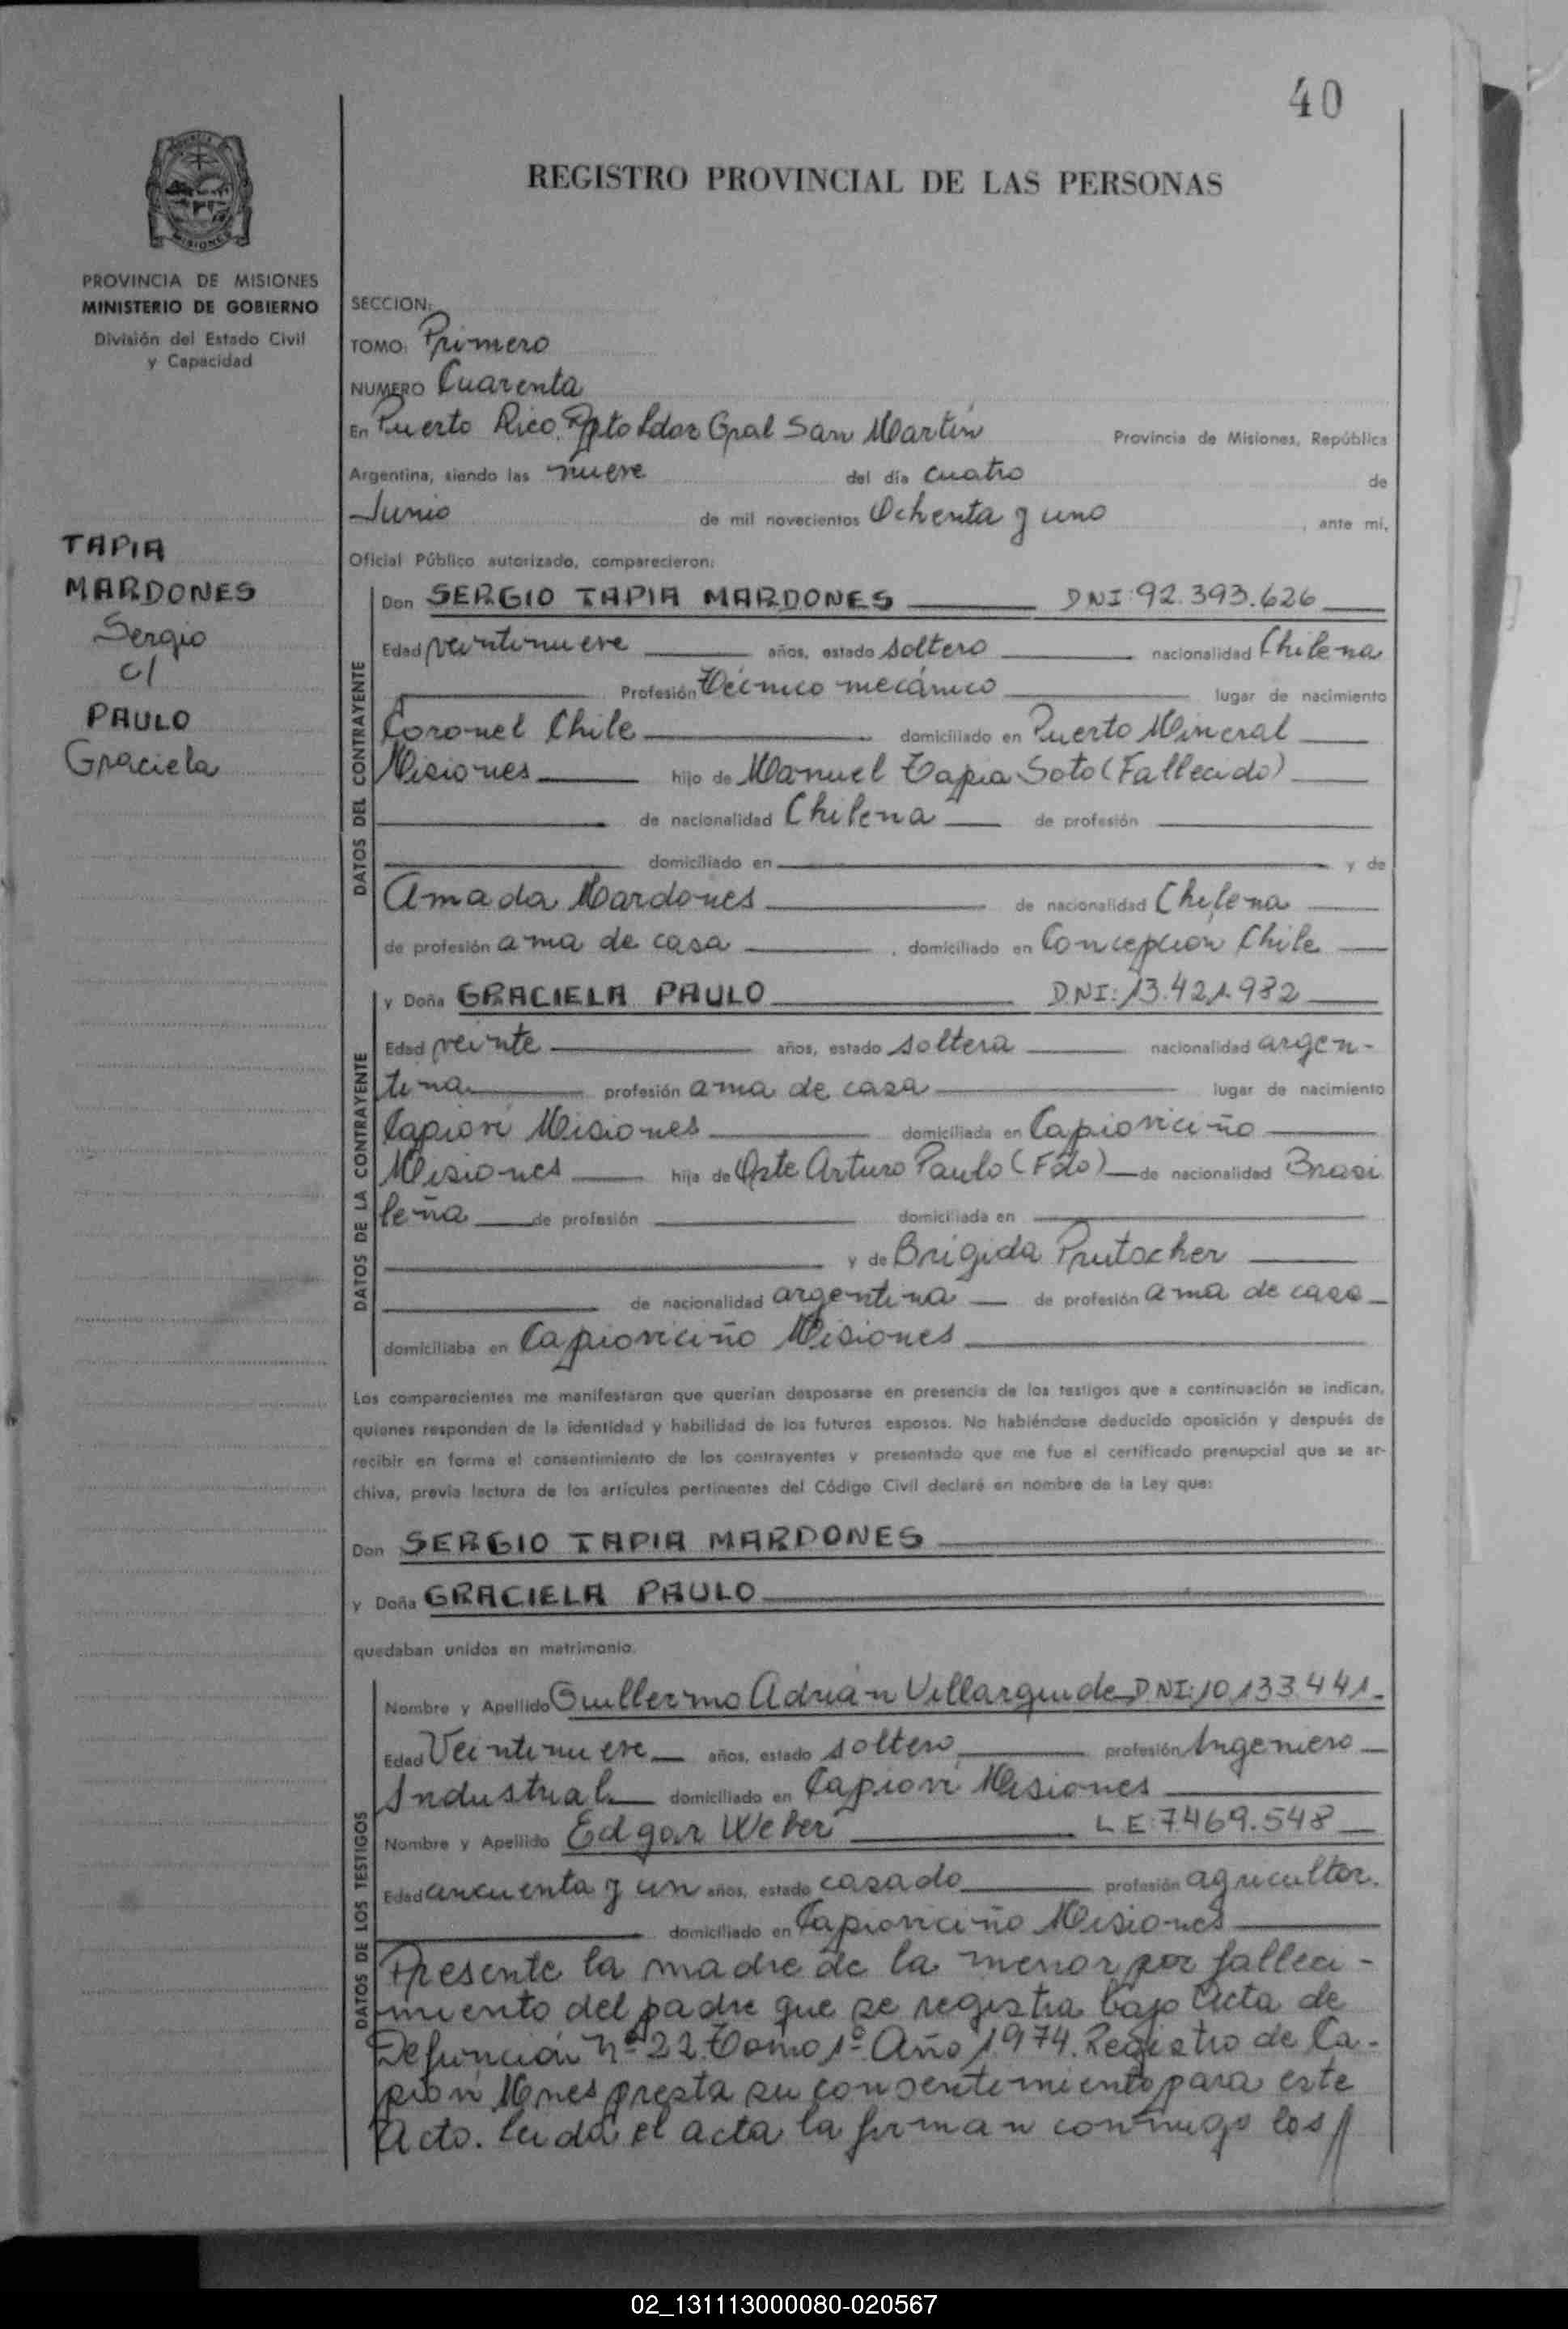 40
REGISTRO PROVINCIAL DE LAS PERSONAS
PROVINCIA DE MISIONES
MINISTERIO DE GOBIERNO
División del Estado Civil
y Capacidad
TAPIA
MARDONES
Sergio
c/
PAULO
Graciela
SECCION:
TOMO: Primero
NUMERO Cuarenta
En Puerto Rico Dpto Ldor Gral San Martín Provincia de Misiones, República
Argentina, siendo las nueve del día cuatro de
Junio de mil novecientos Ochenta y uno, ante mí,
Oficial Público autorizado, comparecieron:
DATOS DEL CONTRAYENTE
Don SERGIO TAPIA MARDONES DNI: 92.393.626
Edad veintinueve años, estado soltero nacionalidad Chilena
Profesión Técnico mecánico lugar de nacimiento
Coronel Chile domiciliado en Puerto Mineral
Misiones hijo de Manuel Tapia Soto (Fallecido)
de nacionalidad Chilena de profesión
domiciliado en y de
Amada Mardones de nacionalidad Chilena
de profesión ama de casa, domiciliado en Concepcion Chile
DATOS DE LA CONTRAYENTE
y Doña GRACIELA PAULO D.N.I: 13.421.982
Edad veinte años, estado soltera nacionalidad argen-
tina profesión ama de casa lugar de nacimiento
Capioví Misiones domiciliada en Capioviciño
Misiones hija de Arturo Paulo (Fdo) de nacionalidad Brasi
leña de profesión domiciliada en
y de Brígida Prutscher
de nacionalidad argentina de profesión ama de casa
domiciliaba en Capioviciño Misiones
Los comparecientes me manifestaron que querían desposarse en presencia de los testigos que a continuación se indican,
quienes responden de la identidad y habilidad de los futuros esposos. No habiéndose deducido oposición y después de
recibir en forma el consentimiento de los contrayentes y presentado que me fue el certificado prenupcial que se ar-
chiva, previa lectura de los artículos pertinentes del Código Civil declaré en nombre de la Ley que:
Don SERGIO TAPIA MARDONES
y Doña GRACIELA PAULO
quedaban unidos en matrimonio.
DATOS DE LOS TESTIGOS
Nombre y Apellido Guillermo Adrián Villarquide D.N.I: 10.133.441.
Edad Veintinueve años, estado soltero profesión Ingeniero
Industrial domiciliado en Capioví Misiones
Nombre y Apellido Edgar Weber L E: 7.469.548
Edad cincuenta y un años, estado casado profesión agricultor.
domiciliado en Capioviciño Misiones
Presente la madre de la menor por falleci-
miento del padre que se registra bajo Acta de
Defunción nº 22. Tomo 1º Año 1974. Registro de Ca-
pioví Mnes presta su consentimiento para este
Acto. Leida el acta la firman conmigo los //
02_131113000080-020567